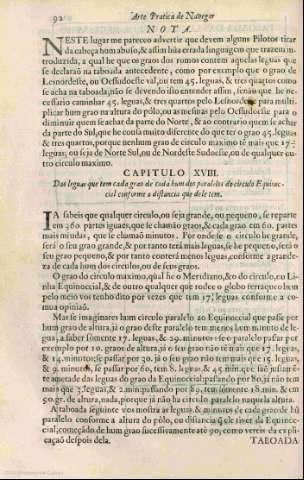 92 Arte Pratica de Navegar
NOTA.
NESTE lugar me pareceo advertir que devem alguns Pilotos tirar
da cabeça hom abuso, & assim hũa errada linguagem que trazem in-
troduzida, a qual he que os graos dos romos contem aquelas leguas que
se declaraõ na taboada antecedente, como por exemplo que o grao de
Lesnordeste, ou Oessudoeste val, ou tem 45. leguas, & tres quartos como
se acha na taboada; não se devendo isto entender assim, senão que he ne-
cessario caminhar 45. leguas, & tres quartos pelo Lesnordeste para multi-
plicar hum grao na altura do pòlo, ou as mesmas pelo Oessudoeste para o
diminuir quem se achar da parte do Norte, & ao contrario quem se achar
da parte do Sul, que he cousa muito diferente do que ter o grao 45. leguas
& tres quartos, porque nenhum grao de circulo maximo tê mais que 17½
leguas, ou seja de Norte Sul, ou de Nordeste Sudoeste, ou de qualquer ou-
tro circulo maximo.
CAPITULO XVIII.
Das leguas que tem cada grao de cada hum dos paralelos do circulo Equinoc-
cial conforme a distancia que dele tem.
JA sabeis que qualquer circulo, ou seja grande, ou pequeno, se reparte
em 360. partes iguaes, que se chamão graos, & cada grao em 60. partes
mais miudas, que se chamão minutos. Por onde se o circulo he grande,
serà o seu grao grande, & por tanto terà mais leguas, se he pequeno, serà o
seu grao pequeno, & por tanto conterà menos leguas, conforme a grande-
za de cada hum dos circulos, ou de seus graos.
O grao do circulo maximo, qual he o Meridiano, & o do circulo, ou Li-
nha Equinoccial, & de outro qualquer que rodee o globo terraqueo bem
pelo meio vos tenho dito por vezes que tem 17½ leguas conforme a co-
mua opiniaõ.
Mas se imaginares hum circulo paralelo ao Equinoccial que passe por
hum grao de altura, jà o grao deste paralelo tem menos hum minuto de le-
gua, a saber somente 17. leguas, & 29. minutos: se o paralelo passar por
exemplo por 10. graos de altura, jà o seu grao não tem mais que 17. leguas,
& 14. minutos; se passar por 30. jà o seu grao não tem mais que 15. leguas,
& 9. minutos, se passar por 60, tem 8. leguas, & 45 min. que saõ justamen-
te ametade das leguas do grao da Equinoccial; passando por 80, jà não tem
mais que 3. leguas, & 2. min. passando por 89. tem sômente 18. min. & em
90. gr. de altura, nada, porque jà não ha circulo paralelo naquela altura.
A taboada seguinte vos mostra as leguas, & minutos de cada grao de hũ
paralelo conforme a altura do pòlo, ou distancia que tiver da Equinoc-
cial, começado de hum grao sucessivamente atè 90, como vereis da expli-
caçaõ despois dela. TABOADA